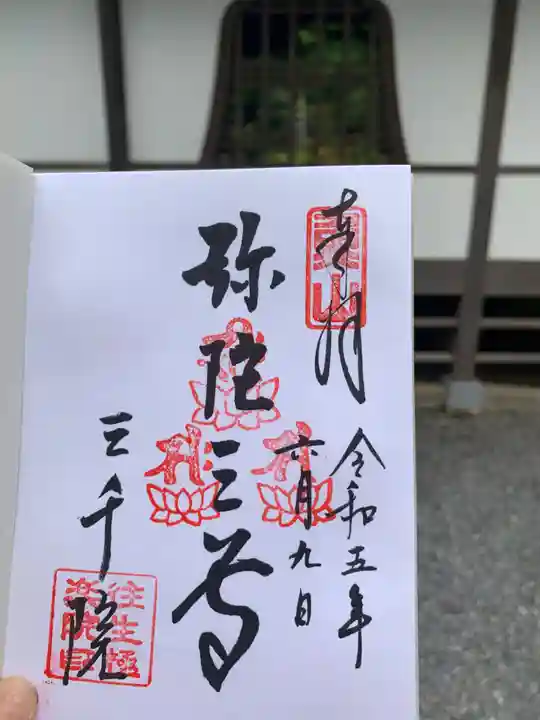 奉拝
令和五年
六月九日
弥陀三尊
三千院
往生極
楽院印